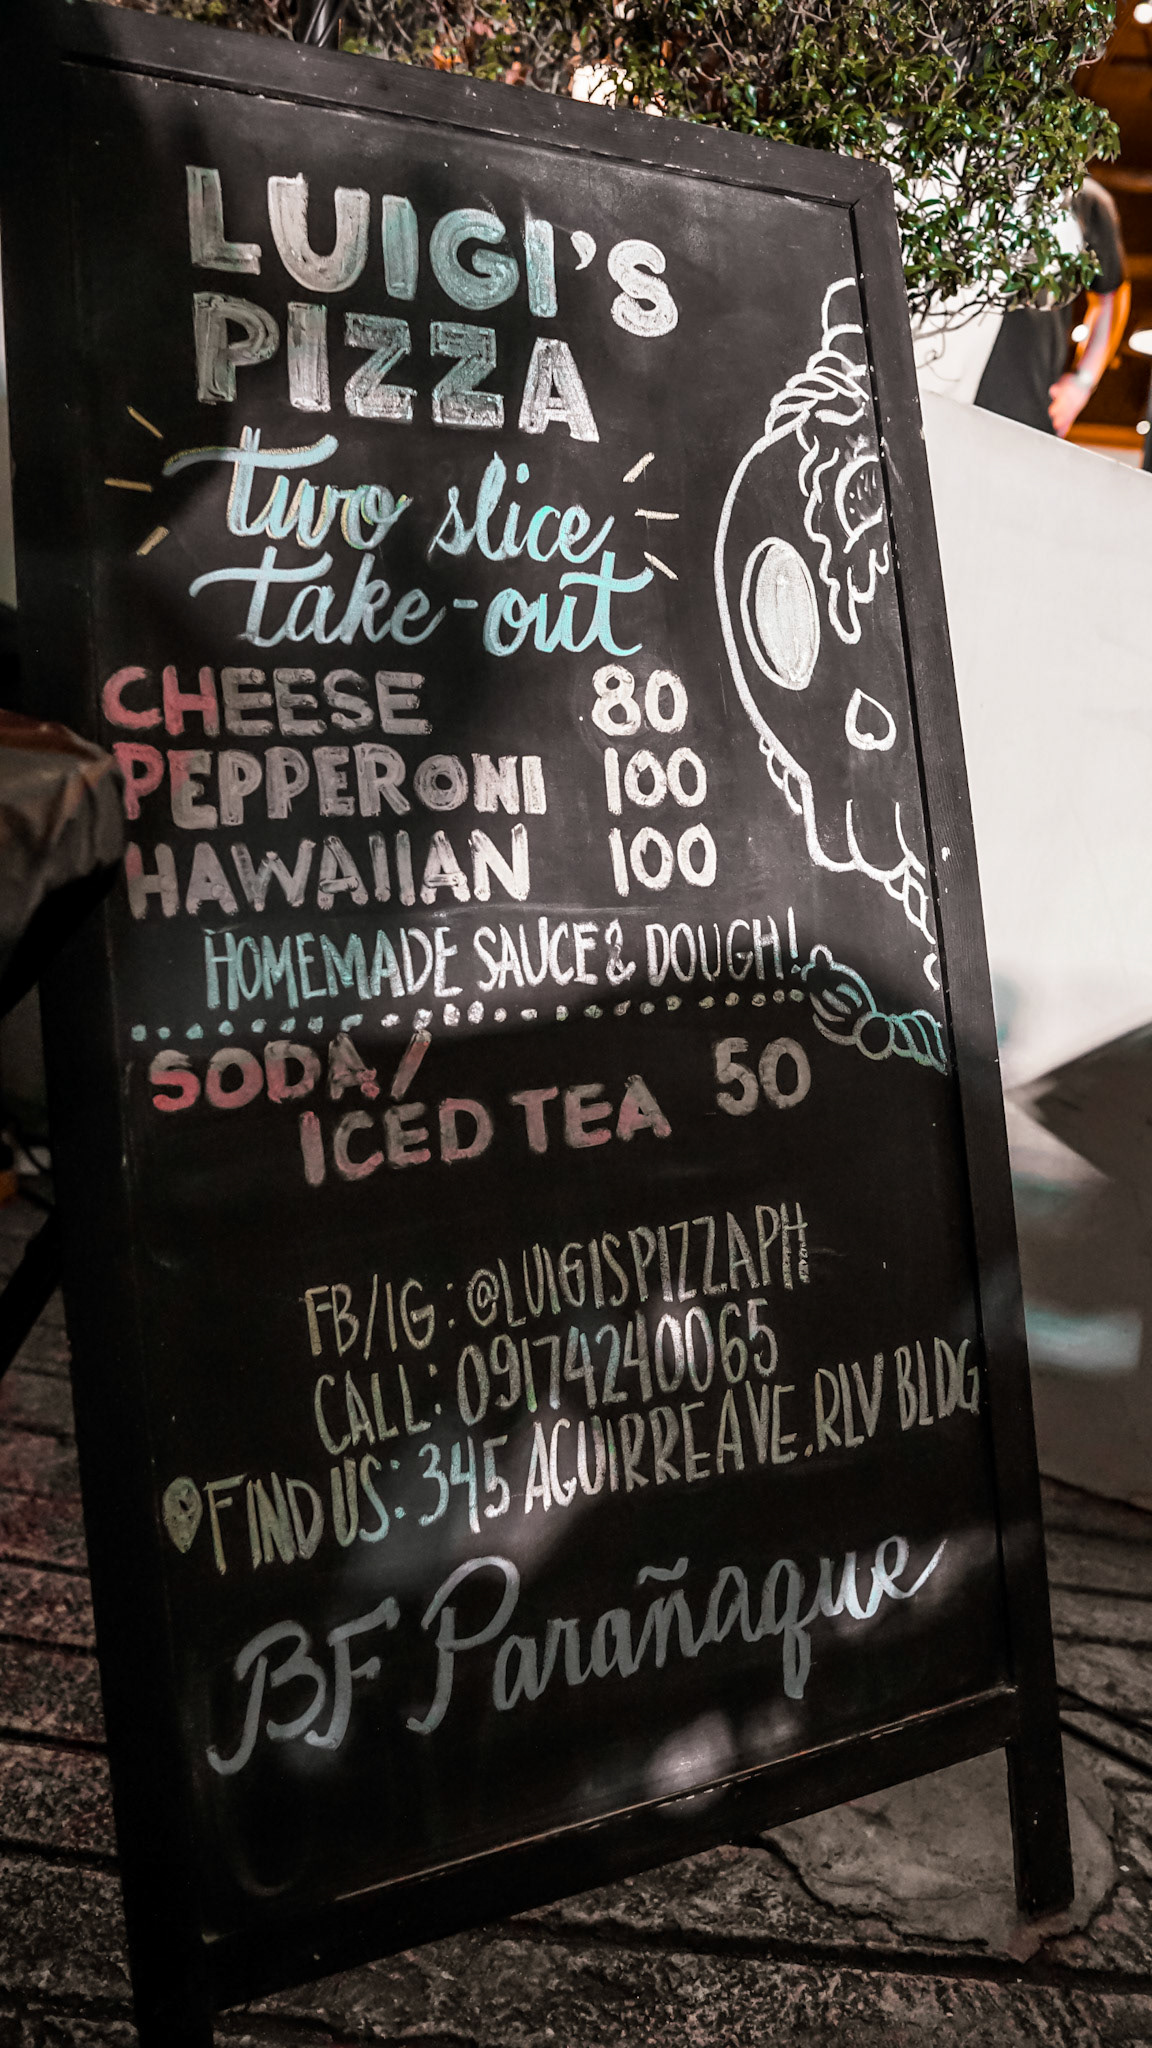 LUIGI'S
PIZZA
two slice
take-out
CHEESE 80
PEPPERONI 100
HAWAIIAN 100
HOMEMADE SAUCE & DOUGH!
SODA/
ICED TEA 50
FB/IG: @LUIGISPIZZAPH
CALL: 09174240065
FIND US: 345 AGUIRRE AVE. RLV BLDG
BF Parañaque